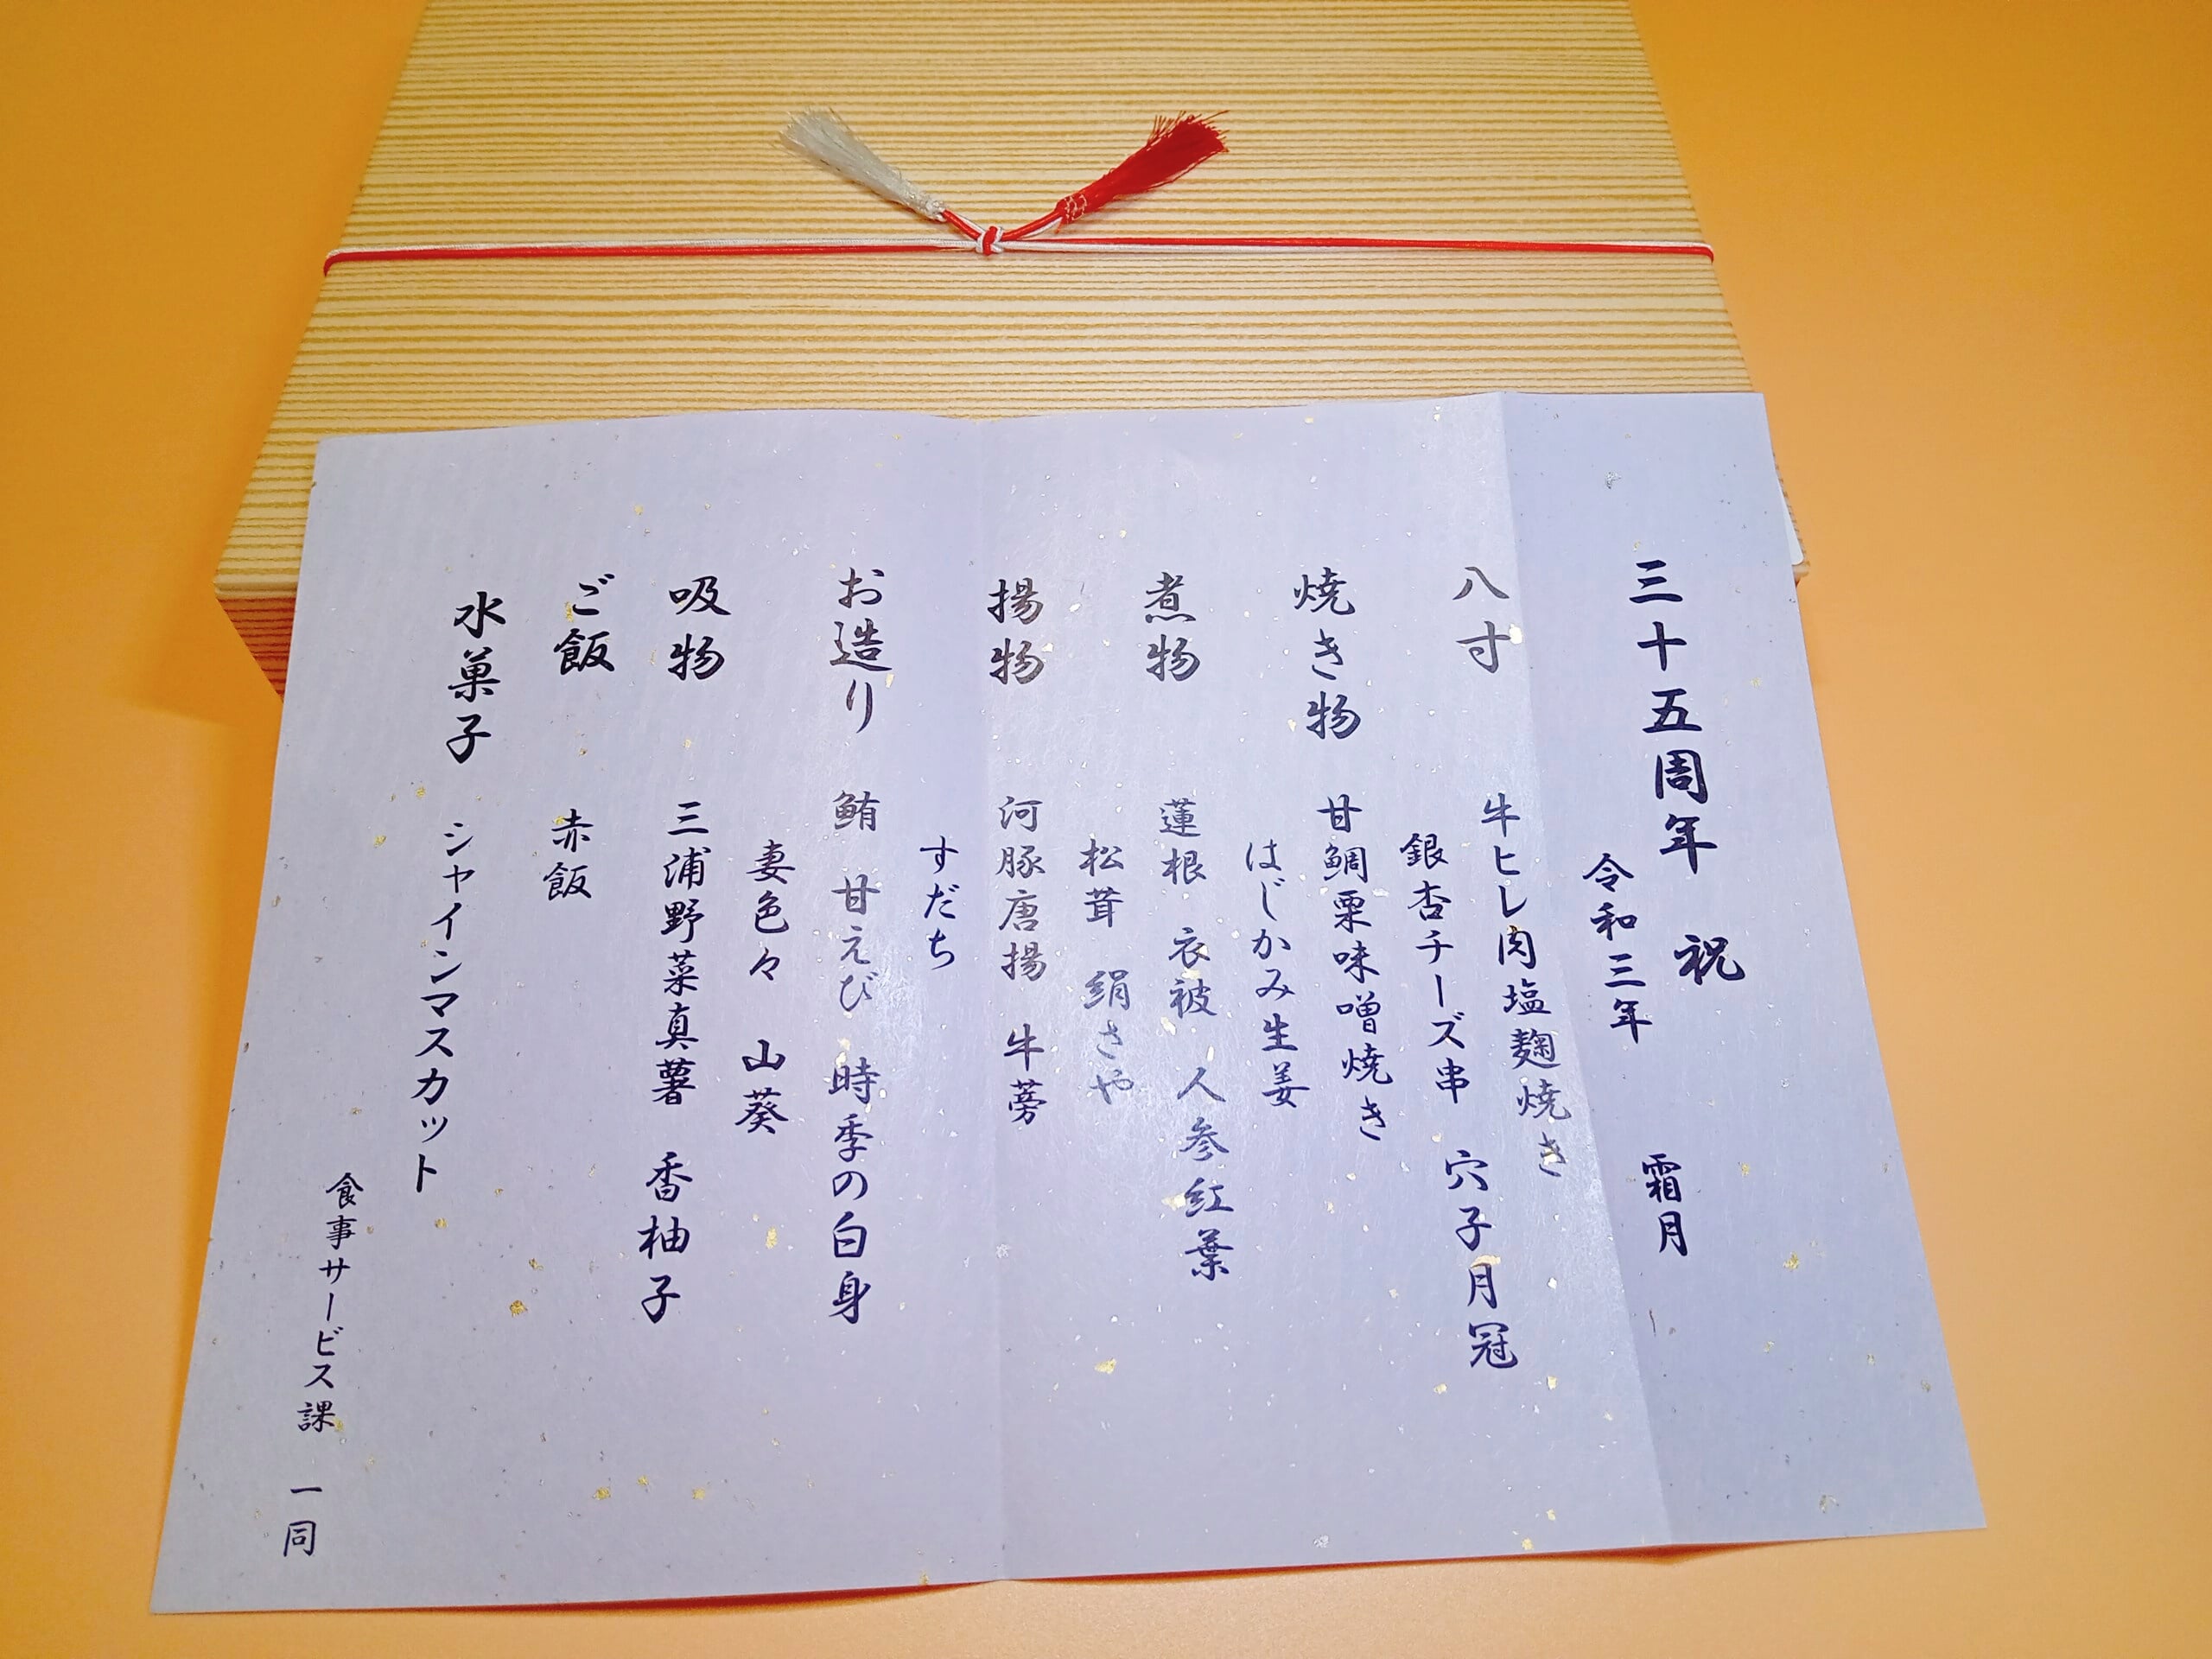 三十五周年 祝
令和三年 霜月
八寸 牛ヒレ肉塩麹焼き
銀杏チーズ串 穴子月冠
焼き物 甘鯛栗味噌焼き
はじかみ生姜
煮物 蓮根 衣被 人参紅葉
松茸 絹さや
揚物 河豚唐揚 牛蒡
すだち
お造り 鮪 甘えび 時季の白身
妻色々 山葵
吸物 三浦野菜真薯 香柚子
ご飯 赤飯
水菓子 シャインマスカット
食事サービス課 一同